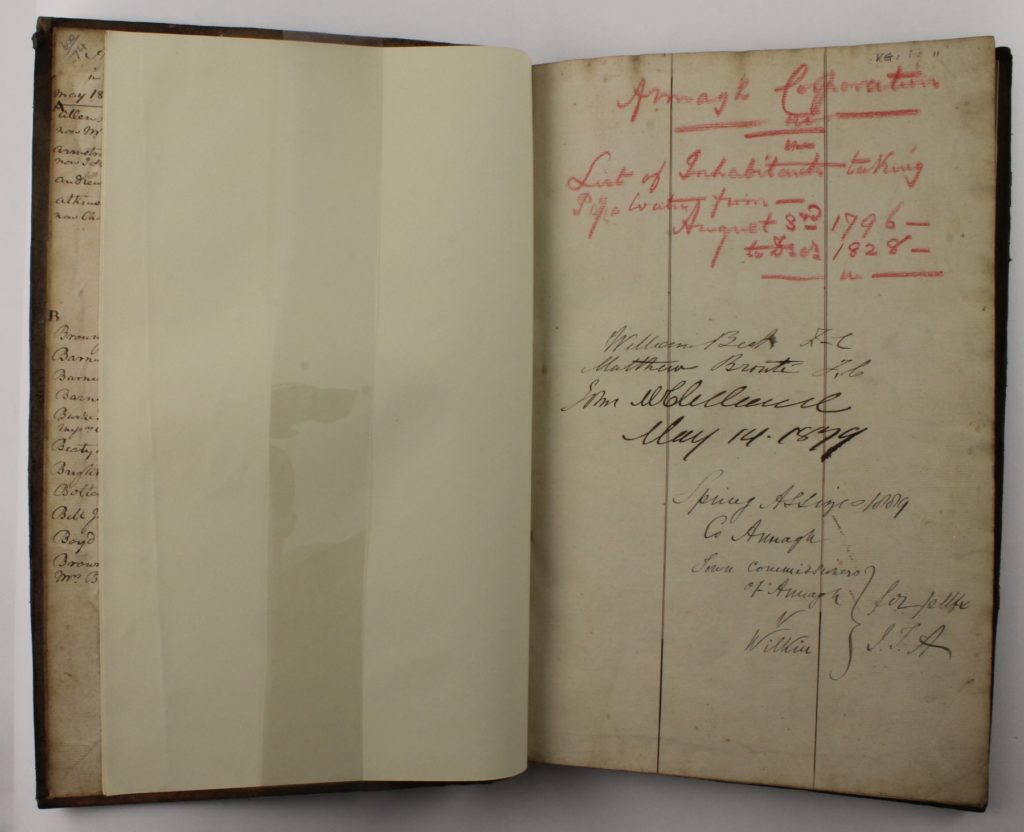 May 18
A
now M
Armstr
Andrew
B
Brown
Barn
Barn
Barn
Beaty
Bright
Bolto
Bell J
Boyd
Brown
Mrs B
Armagh Corporation
List of Inhabitants taking
Pipe Water from —
August 3rd 1796 —
to Decr 1828 —
William Beck T-C
Matthew Bronte T.C
John McClelland
May 14. 1879
Spring Assizes 1889
Co Armagh
Town Commissioners
of Armagh
v
Wilkin
for pltffs
J. F. A